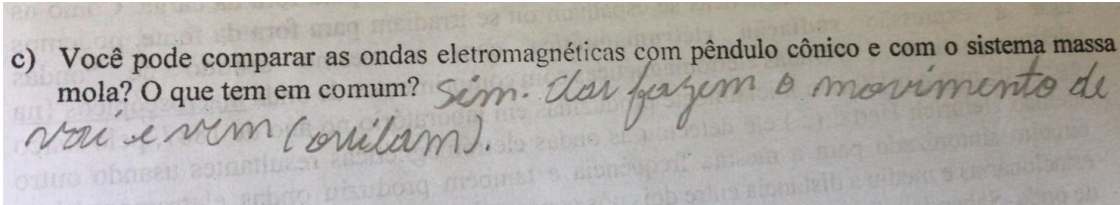 c) Você pode comparar as ondas eletromagnéticas com pêndulo cônico e com o sistema massa
mola? O que tem em comum? Sim. Elas fazem o movimento de
vai e vem (oscilam).